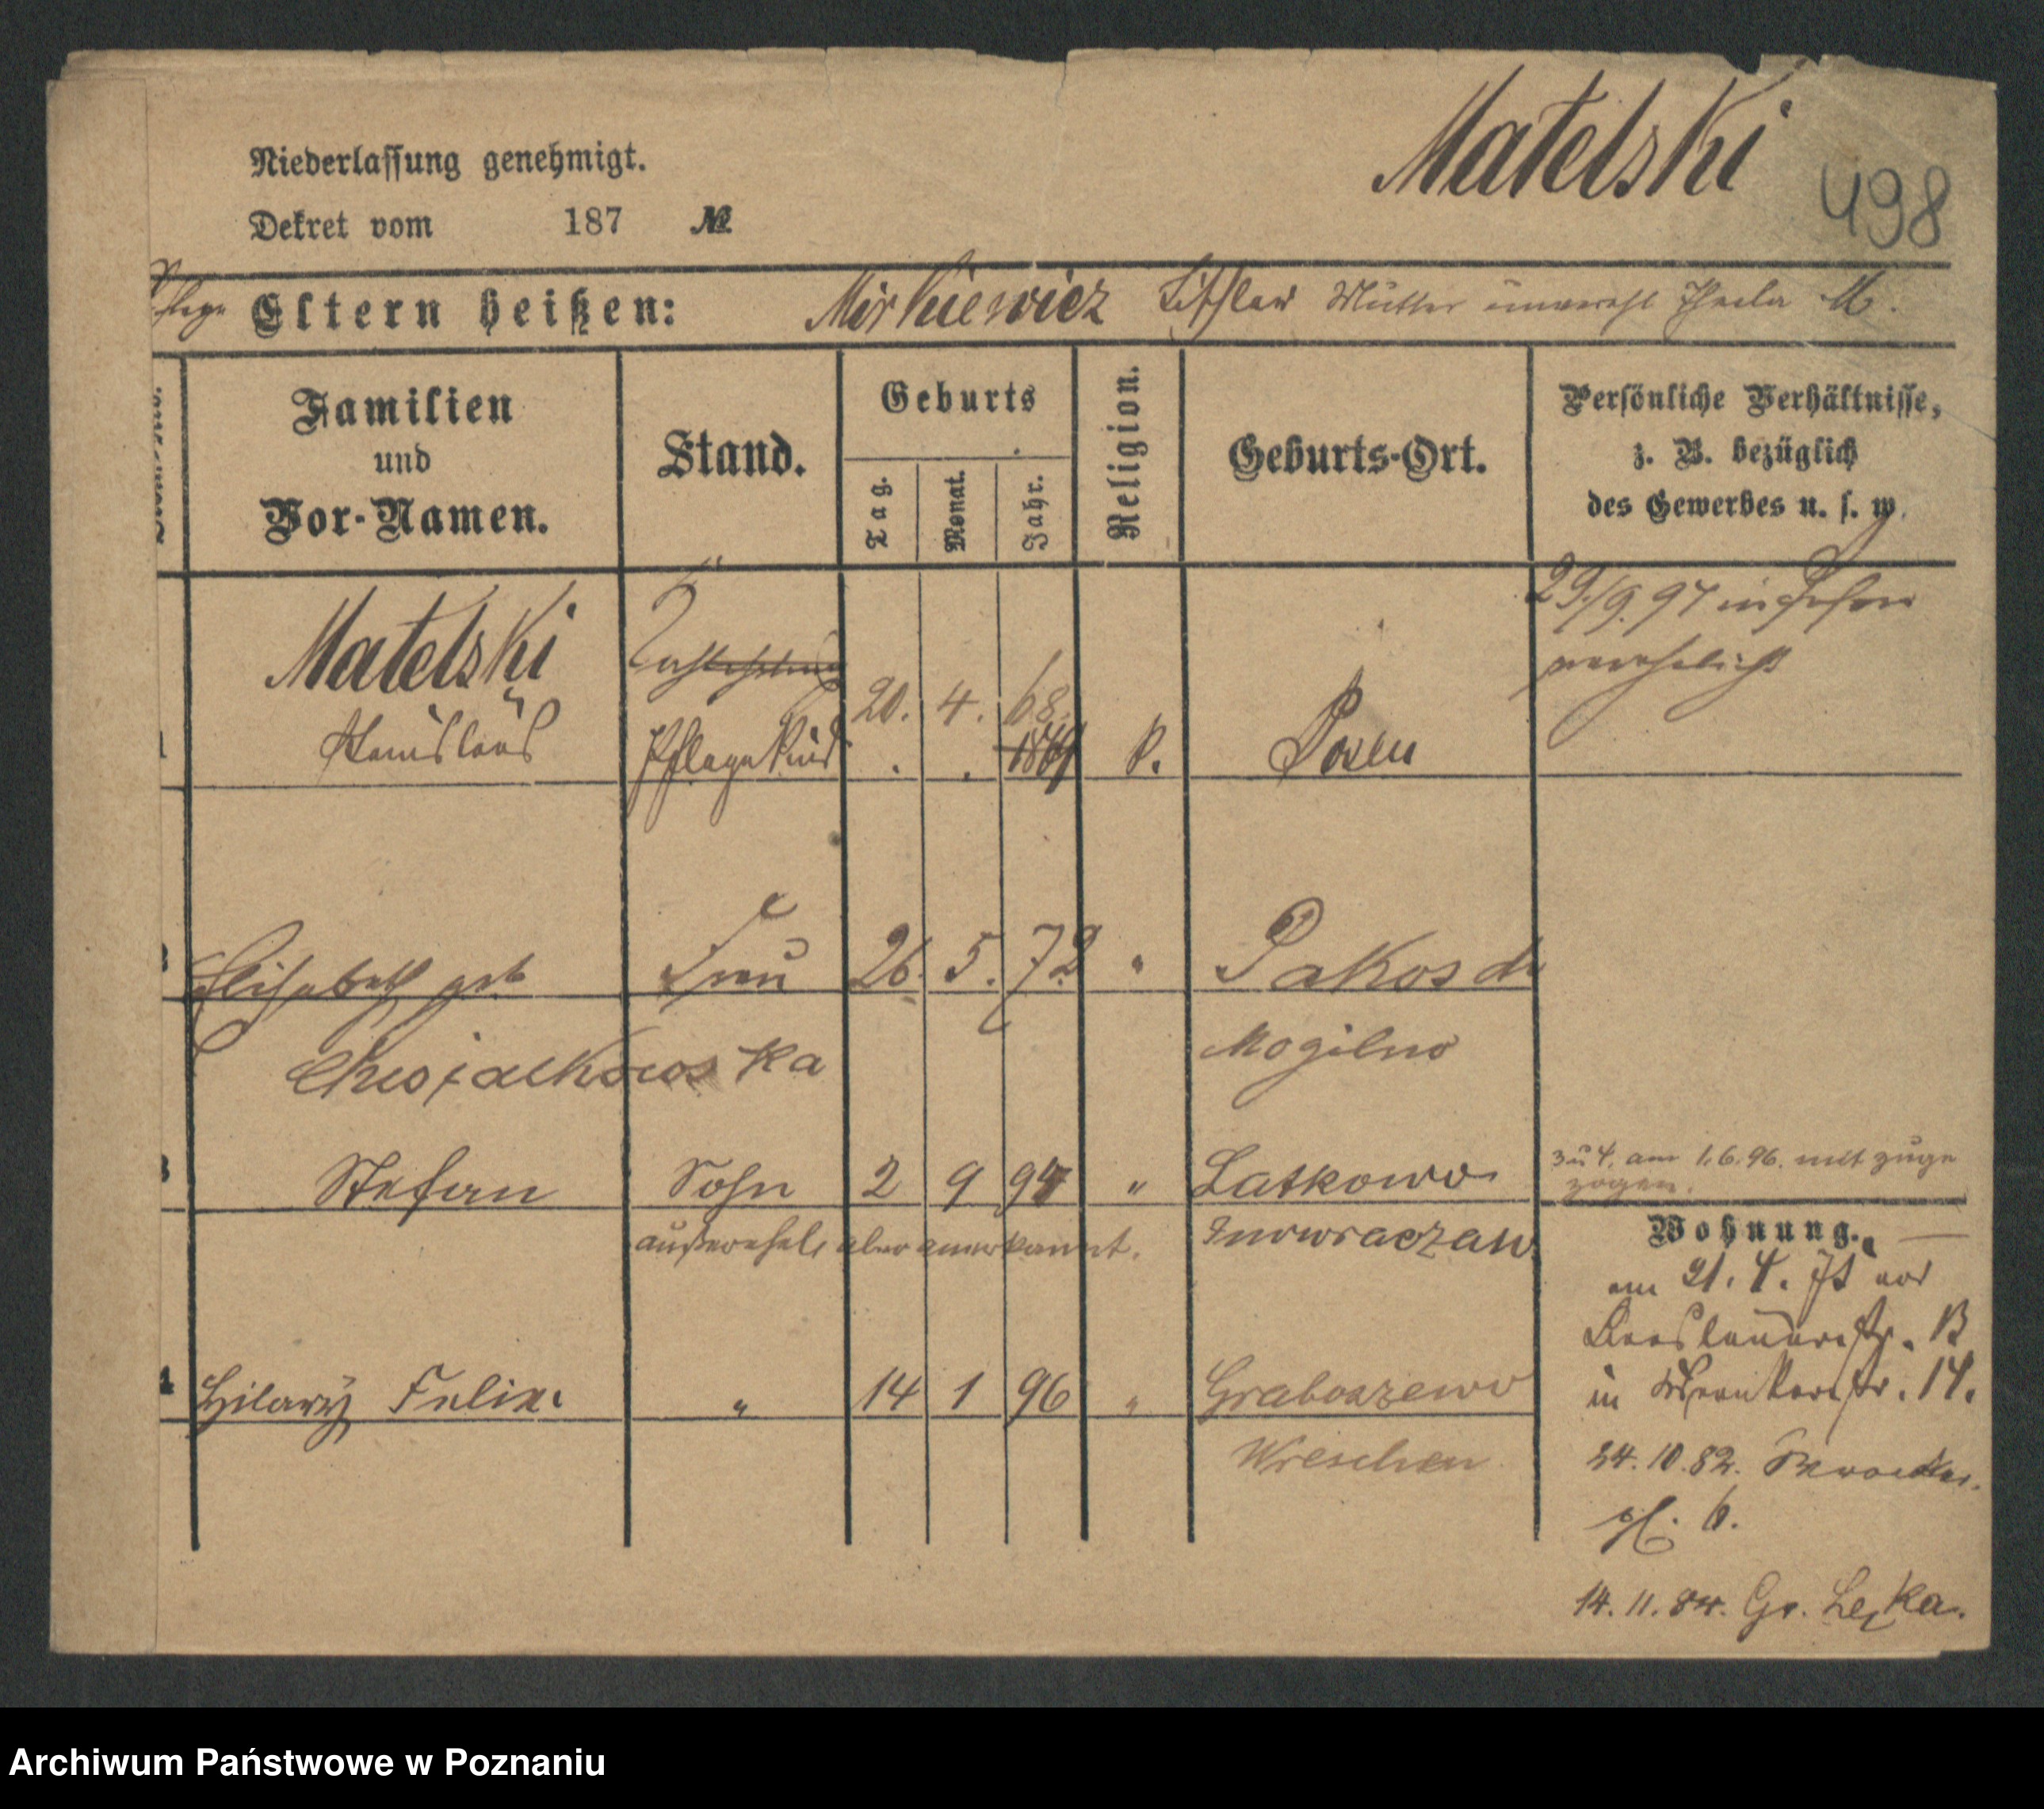 Matelski
498
Niederlassung genehmigt.
Dekret vom 187 №
Pflege Eltern heißen: Mirkiewicz Tischler Mutter unverehl Thecla M.
Familien und Vor-Namen.
Stand.
Geburts
Tag.
Monat.
Jahr.
Religion.
Geburts-Ort.
Persönliche Verhältnisse,
z. B. bezüglich
des Gewerbes u. s. w.
29/9. 97 in Posen
verehelicht
Matelski
Stanislaus
Pflegekind
20. 4. 68.
K.
Posen
2 Elisabeth geb Frau 26. 5. 72 " Pakosch
Mogilno
3 Stefan Sohn 2 9 94 " Latkowo
3 u 4. am 1.6.96. mit zuge
zogen.
außerehel. aber anerkannt.
Inowraczaw
Wohnung.
am 21. 4. 75 von
Breslauerstr. 13
in 14.
4 Hilary Felix. " 14 1 96 " Graboszewo
Wreschen
24. 10. 82.
pl. 6.
14. 11. 84. Gr.
Archiwum Państwowe w Poznaniu